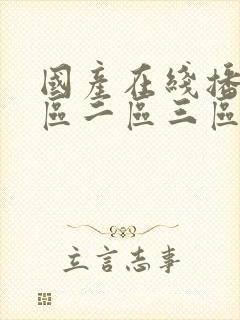 國產在綫播
區二區三區
立言志事